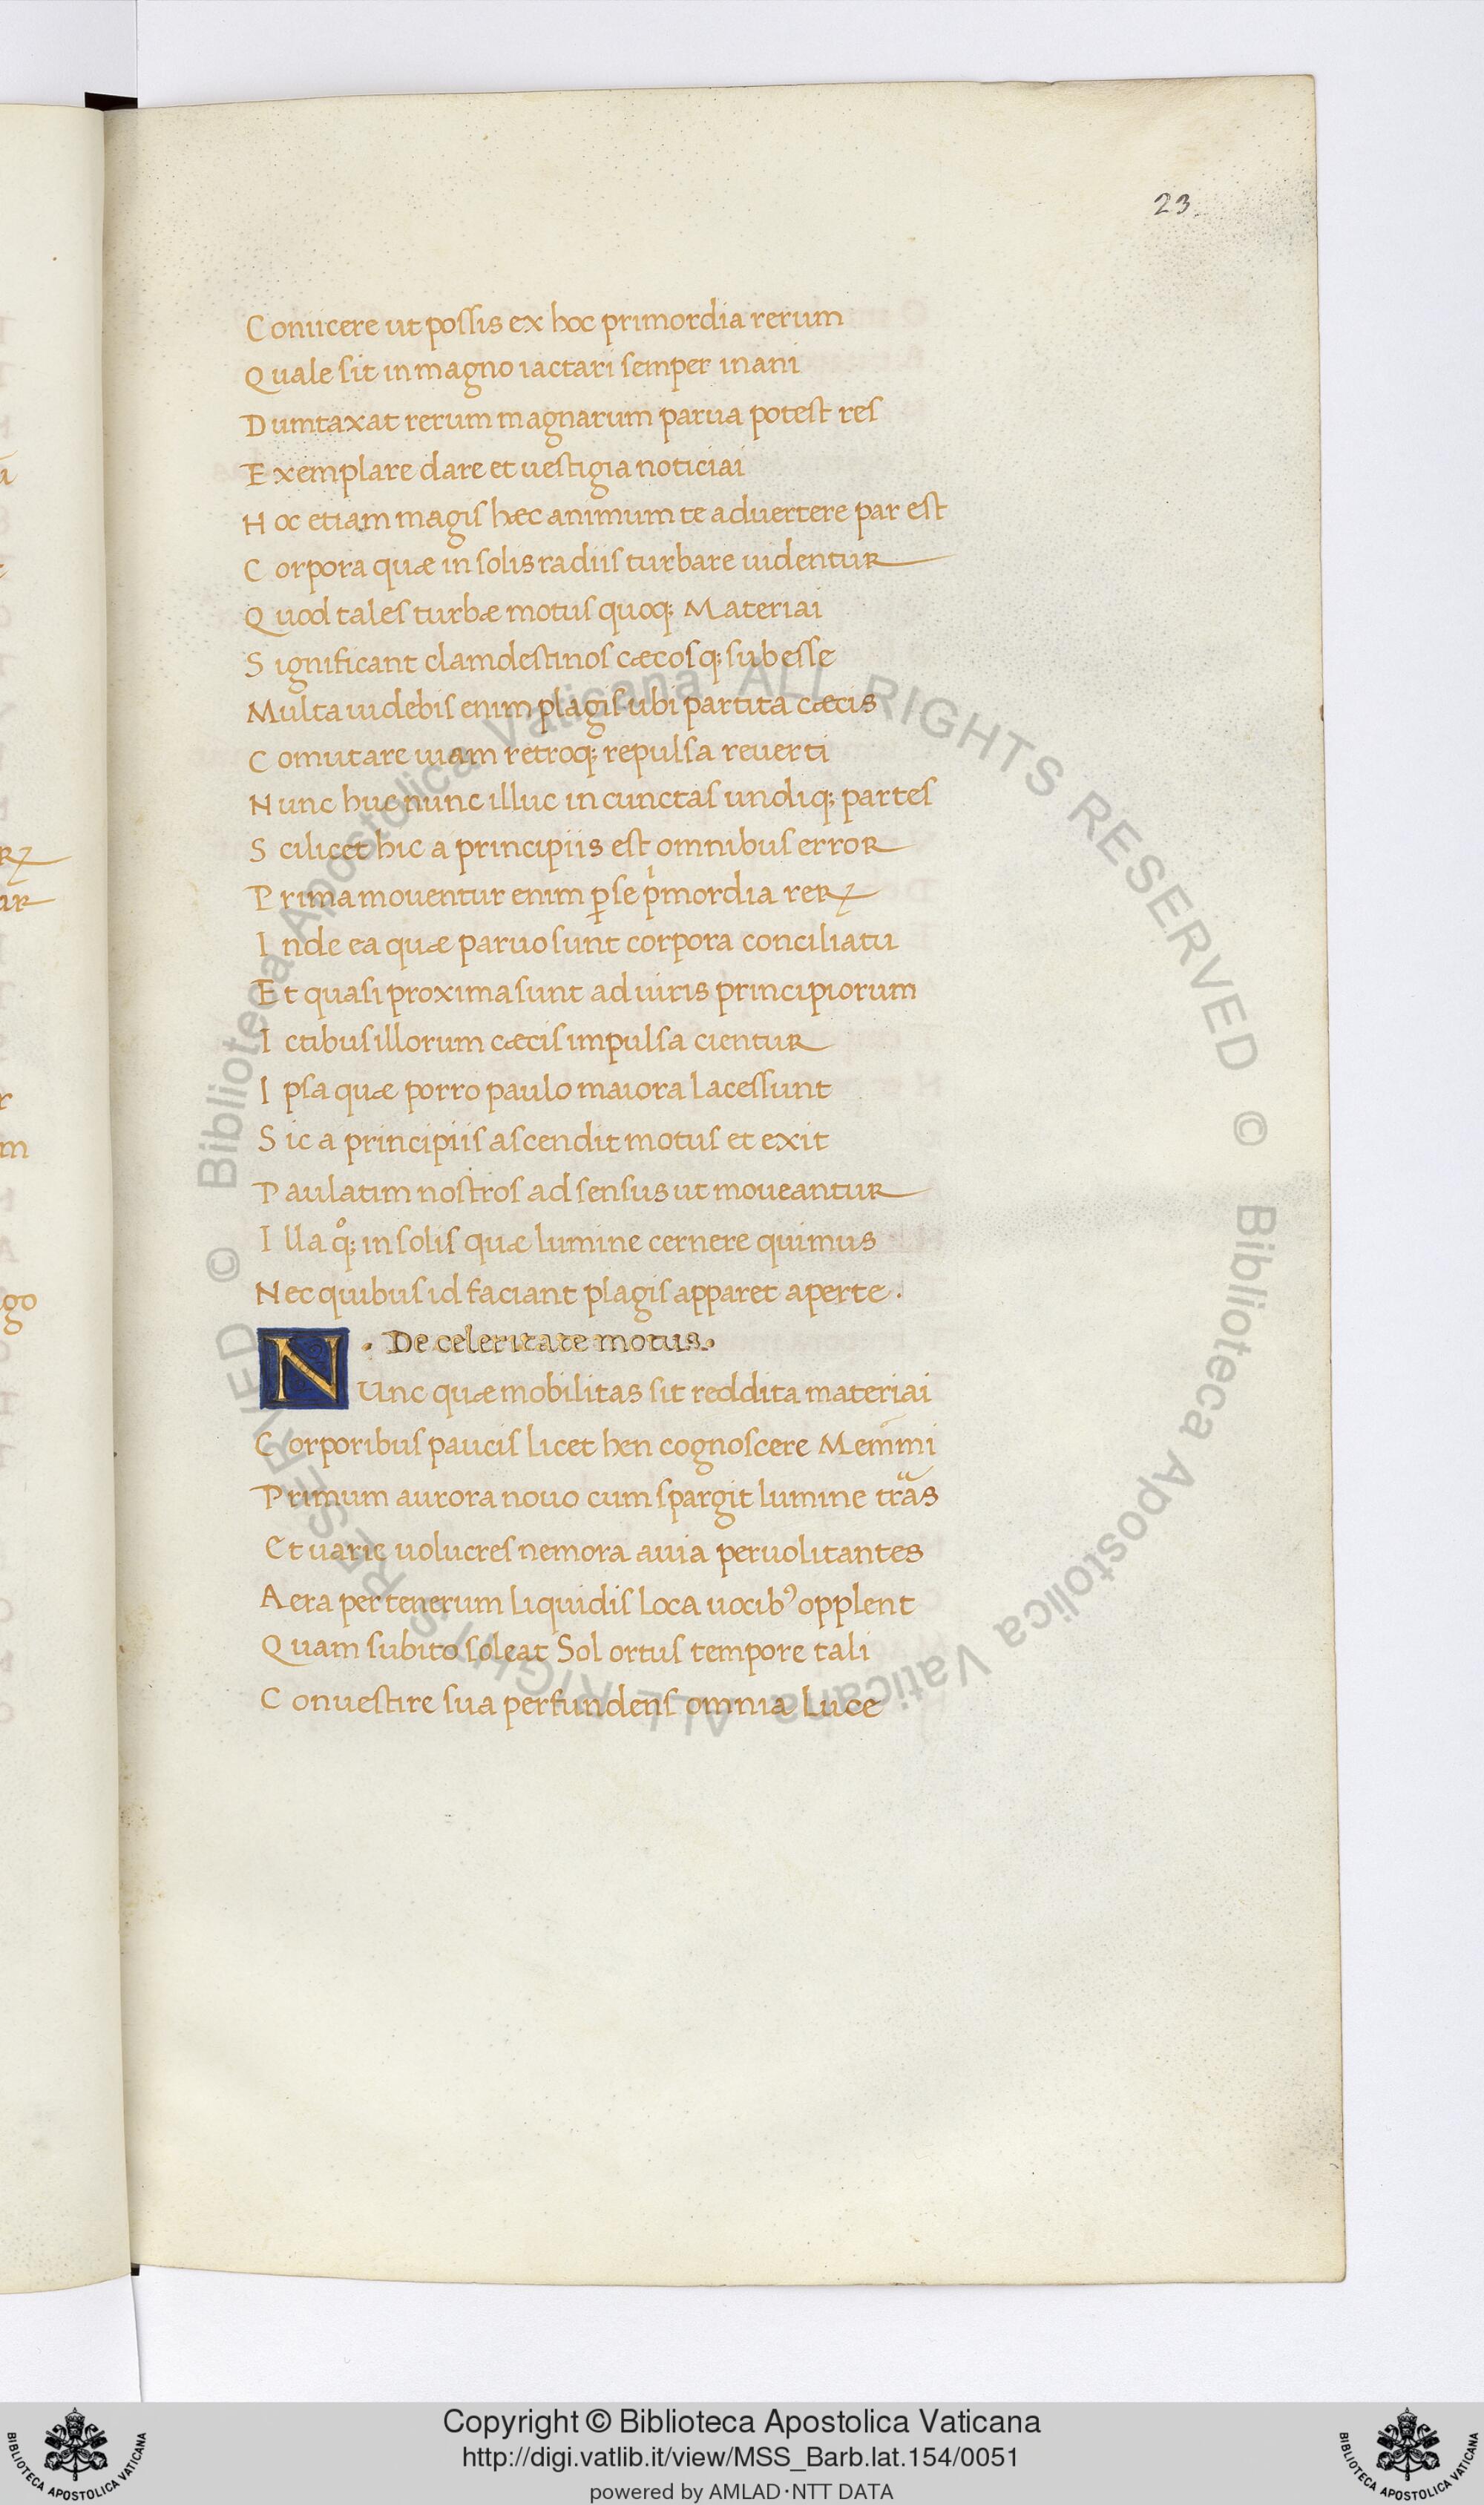 23
Conucere ut possis ex hoc primordia rerum
Quale sit in magno iactari semper inani
Dumtaxat rerum magnarum parua potest res
Exemplare dare et uestigia noticiai
Hoc etiam magis hæc animum te aduertere par est
Corpora quæ in solis radiis turbare uidentur
Quod tales turbæ motus quoq; Materiai
Significant clamdestinos cæcosq; subesse
Multa uidebis enim plagis ubi partita cæcis
Comutare uiam retroq; repulsa reuerti
Nunc huc nunc illuc in cunctas undiq; partes
Scilicet hic a principiis est omnibus error
Prima mouentur enim ꝑ se pͥmordia reꝝ
Inde ea quæ paruo sunt corpora conciliatu
Et quasi proxima sunt ad uiris principiorum
Ictibus illorum cæcis impulsa cientur
Ipsa quæ porro paulo maiora lacessunt
Sic a principiis ascendit motus et exit
Paulatim nostros ad sensus ut moueantur
Illa qͦ; in solis quæ lumine cernere quimus
Nec quibus id faciant plagis apparet aperte .
. De celeritate motus .
NUnc quæ mobilitas sit reddita materiai
Corporibus paucis licet hen cognoscere Mem̄mi
Primum aurora nouo cum spargit lumine tr̄as
Et uarie uolucres nemora auia peruolitantes
Aera per tenerum liquidis loca uocibꝰ opplent
Quam subito soleat Sol ortus tempore tali
Conuestire sua perfundens omnia luce
© Biblioteca Apostolica Vaticana ALL RIGHTS RESERVED © Biblioteca Apostolica Vaticana ALL RIGHTS RESERVED
Copyright © Biblioteca Apostolica Vaticana
http://digi.vatlib.it/view/MSS_Barb.lat.154/0051
powered by AMLAD·NTT DATA
BIBLIOTECA APOSTOLICA VATICANA
BIBLIOTECA APOSTOLICA VATICANA